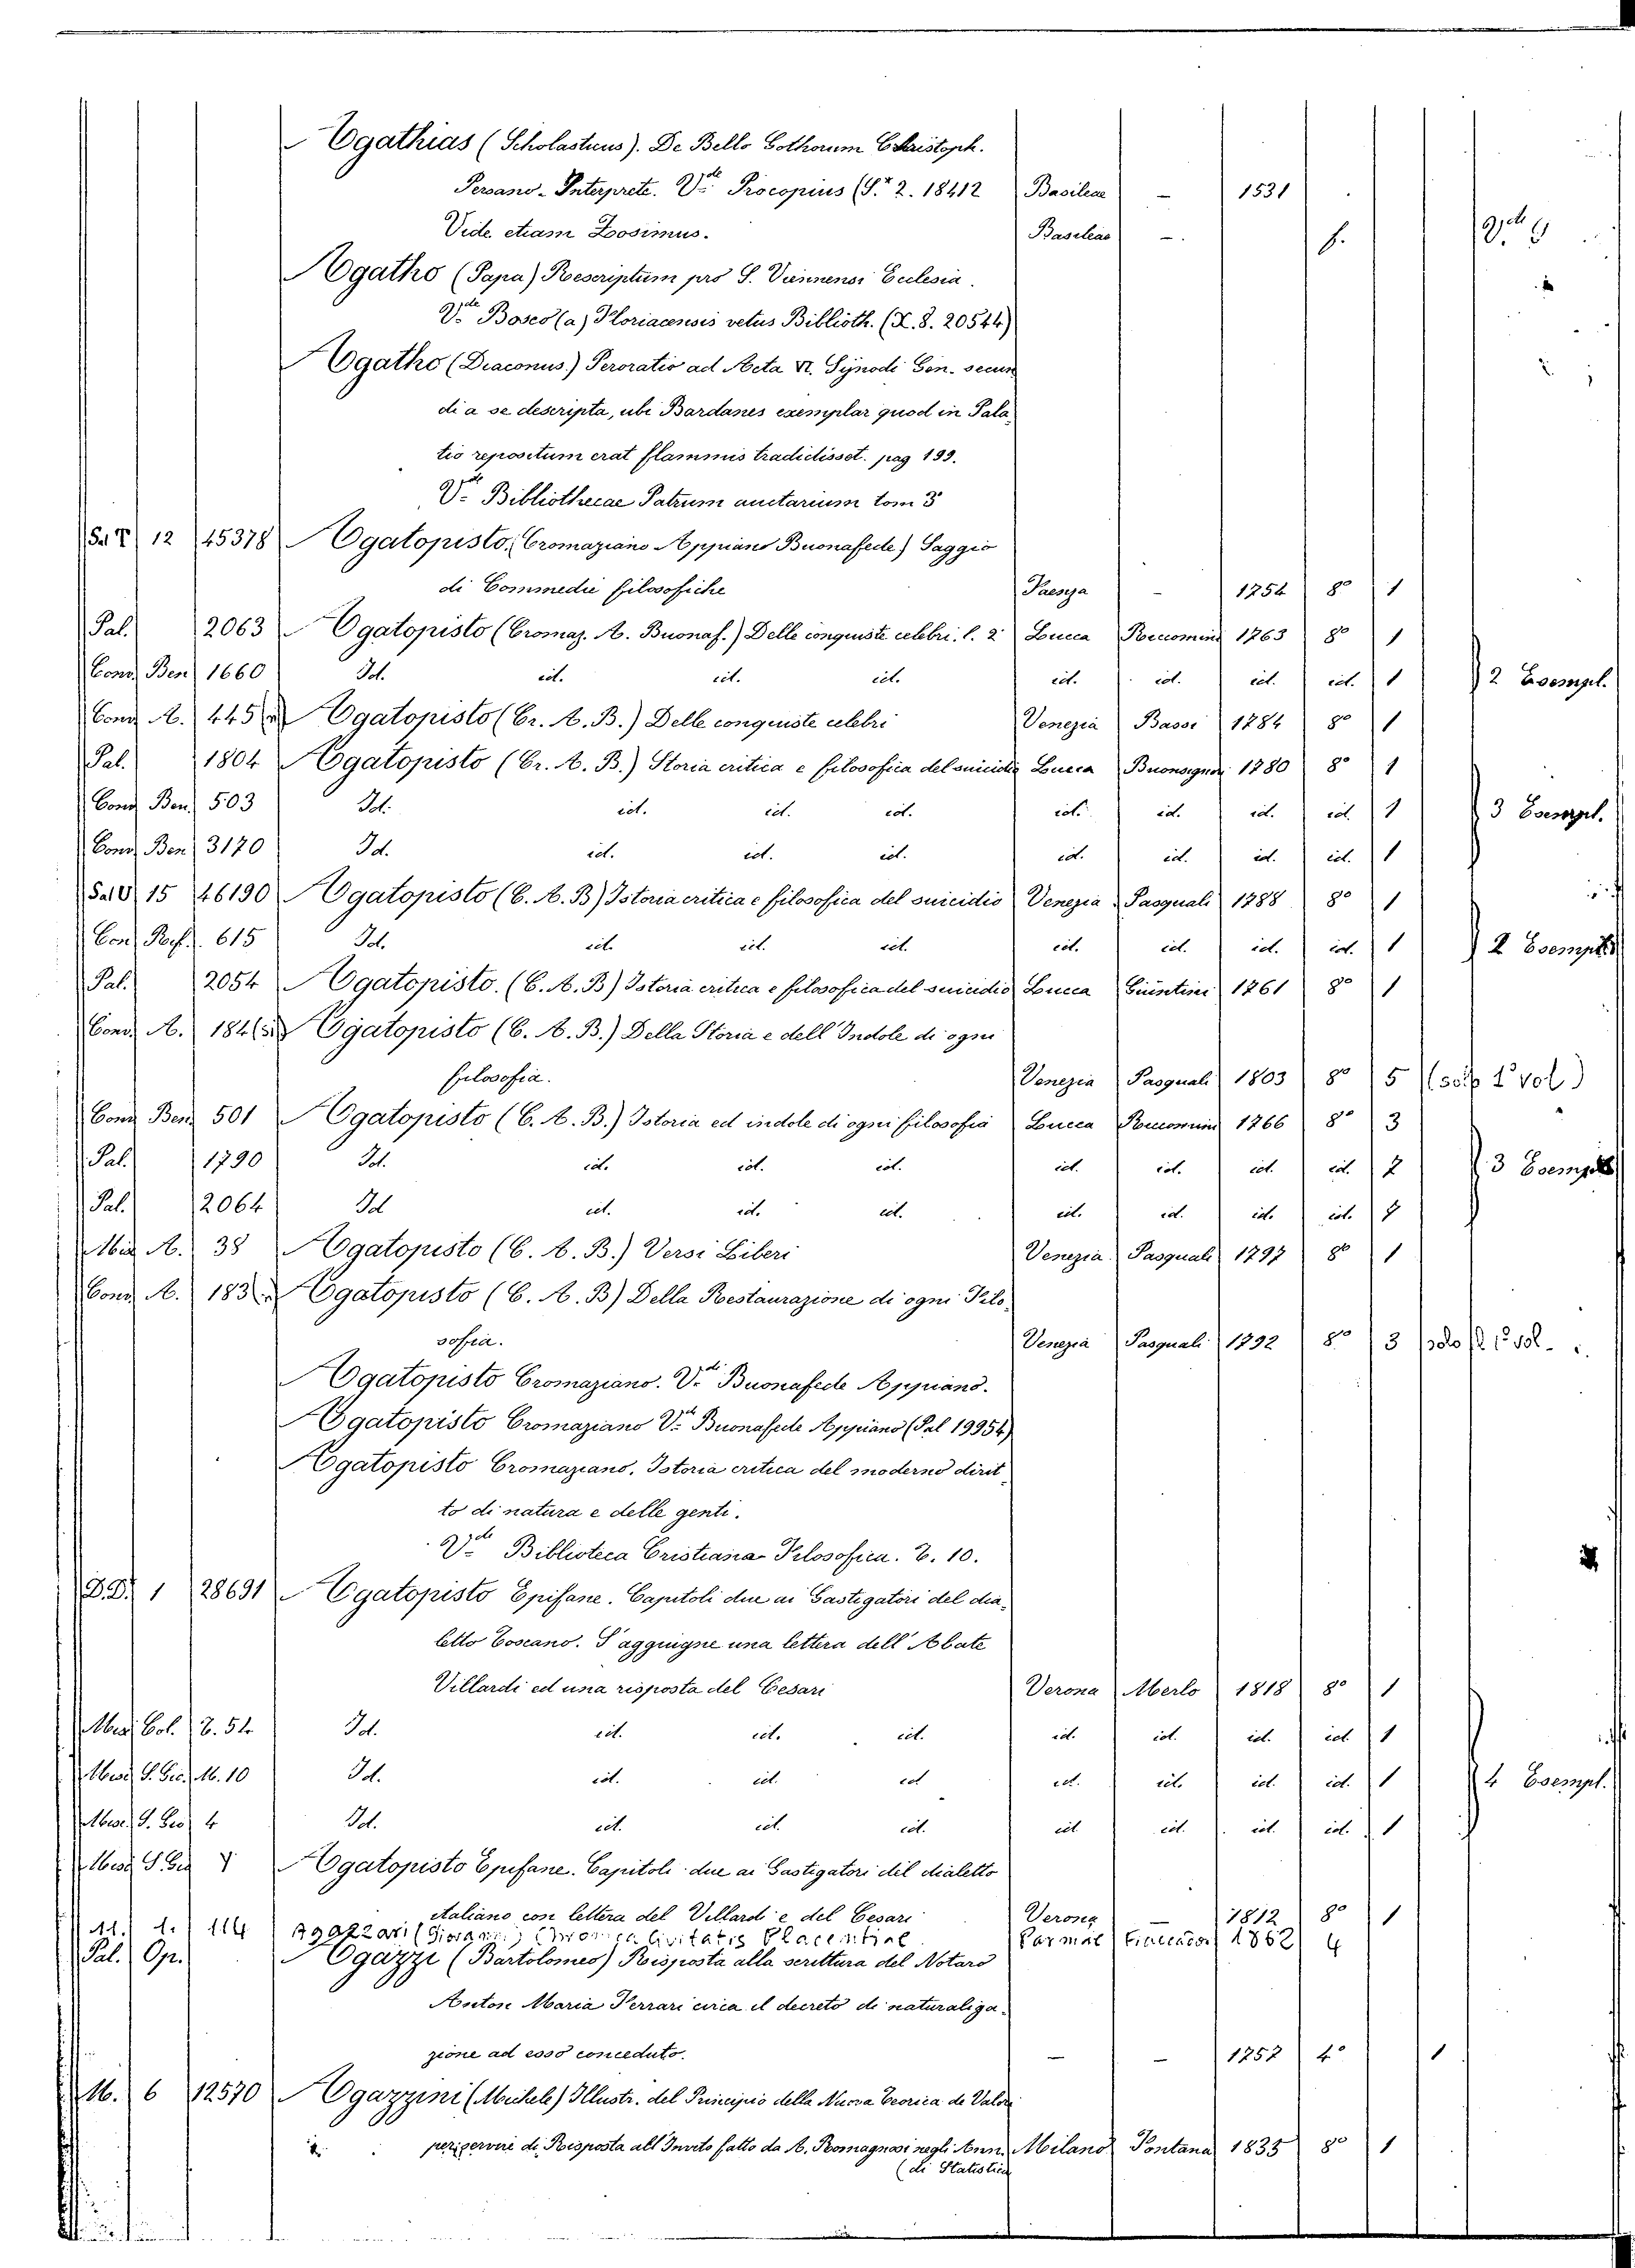 Agathias (Scholasticus). De Bello Gothorum Christoph.
Persano-Interprete. V.de Procopius (S.T 2. 18412 Basileae - 1531
Vide etiam Zosimus. Basileae - f.
Agatho (Papa) Rescriptum pro S. Viennensi Ecclesia.
V.de Bosco (a) Floriacensis vetus Biblioth. (X. 8. 20544)
Agatho (Diaconus) Peroratio ad Acta VI. Synodi Gen. secun
di a se descripta, ubi Bardanes exemplar quod in Pala
tio repositum erat flammis tradidisset. pag 199.
V.de Bibliothecae Patrum auctarium tom 3
Sa. T 12 45378 Agatopisto, Cromaziano Appiano Buonafede) Saggio
di Commedie filosofiche Faenza - 1754 8º 1
Pal. 2063 Agatopisto (Cromaz. A. Buonaf.) Delle conquiste celebri. l. 2 Lucca Riccomini 1763 8º 1
Conv. Ben. 1660 Id. id. id. id. id. id. id. id. 1 2 Esempl.
Conv. A. 445 Agatopisto (Cr. A. B.) Delle conquiste celebri Venezia Bassi 1784 8º 1
Pal. 1804 Agatopisto (Cr. A. B.) Storia critica e filosofica del suicidio Lucca Buonsignori 1780 8º 1
Conv. Ben. 503 Id. id. id. id. id. id. id. id. 1 3 Esempl.
Conv. Ben. 3170 Id. id. id. id. id. id. id. id. 1
Sa. V 15 46190 Agatopisto (C. A. B) Istoria critica e filosofica del suicidio Venezia Pasquali 1788 8º 1
Con. Ref. 615 Id. id. id. id. id. id. id. id. 1 2 Esempl.
Pal. 2054 Agatopisto. (C. A. B) Istoria critica e filosofica del suicidio Lucca Giuntini 1761 8º 1
Conv. A. 184 Agatopisto (C. A. B.) Della Storia e dell Indole di ogni
filosofia. Venezia Pasquali 1803 8º 5 (solo 1º vol.)
Conv. Ben. 501 Agatopisto (C. A. B.) Istoria ed indole di ogni filosofia Lucca Riccomini 1766 8º 3
Pal. 1790 Id. id. id. id. id. id. id. id. 2 3 Esempl.
Pal. 2064 Id id. id. id. id. id. id. id.
Mis. A. 38 Agatopisto (C. A. B.) Versi Liberi Venezia Pasquali 1797 8º 1
Conv. A. 183 Agatopisto (C. A. B) Della Restaurazione di ogni Filo
sofia. Venezia Pasquali 1792 8º 3 solo il 1º vol.
Agatopisto Cromaziano. V.de Buonafede Appiano.
Agatopisto Cromaziano V.de Buonafede Appiano (Pal 19954)
Agatopisto Cromaziano, Istoria critica del moderno dirit
to di natura e delle genti.
V.de Biblioteca Cristiana-Filosofica. T. 10.
D.D. 1 28691 Agatopisto Epifane. Capitoli due ai Gastigatori del dia
letto Toscano. S'aggiugne una lettera dell' Abate
Villardi ed una risposta del Cesari Verona Merlo 1818 8º 1
Misc. Col. T. 54 Id. id. id. id. id. id. id. id. 1
Misc. S. Gio. M. 10 Id. id. id. id id. id. id. id. 1 4 Esempl.
Misc. S. Gio 4 Id. id. id. id. id id. id. id. 1
Misc. S. Gio Agatopisto Epifane. Capitoli due ai Gastigatori del dialetto
italiano con lettera del Villardi e del Cesari Verona - 1812 8º 1
114 Agazzari (Giovanni) Chronica Civitatis Placentiae Parmae Fiaccadori 1862 4
Pal. Op. Agazzi (Bartolomeo) Risposta alla scrittura del Notaro
Anton Maria Ferrari circa il decreto di naturaliza
zione ad esso conceduto. - - 1757 4º 1
M. 6 12570 Agazzini (Michele) Illustr. del Principio della Nuova Teorica de Valori
per servire di Risposta all Invito fatto da A. Romagnosi negli Ann. Milano Fontana 1835 8º 1
(di Statistica